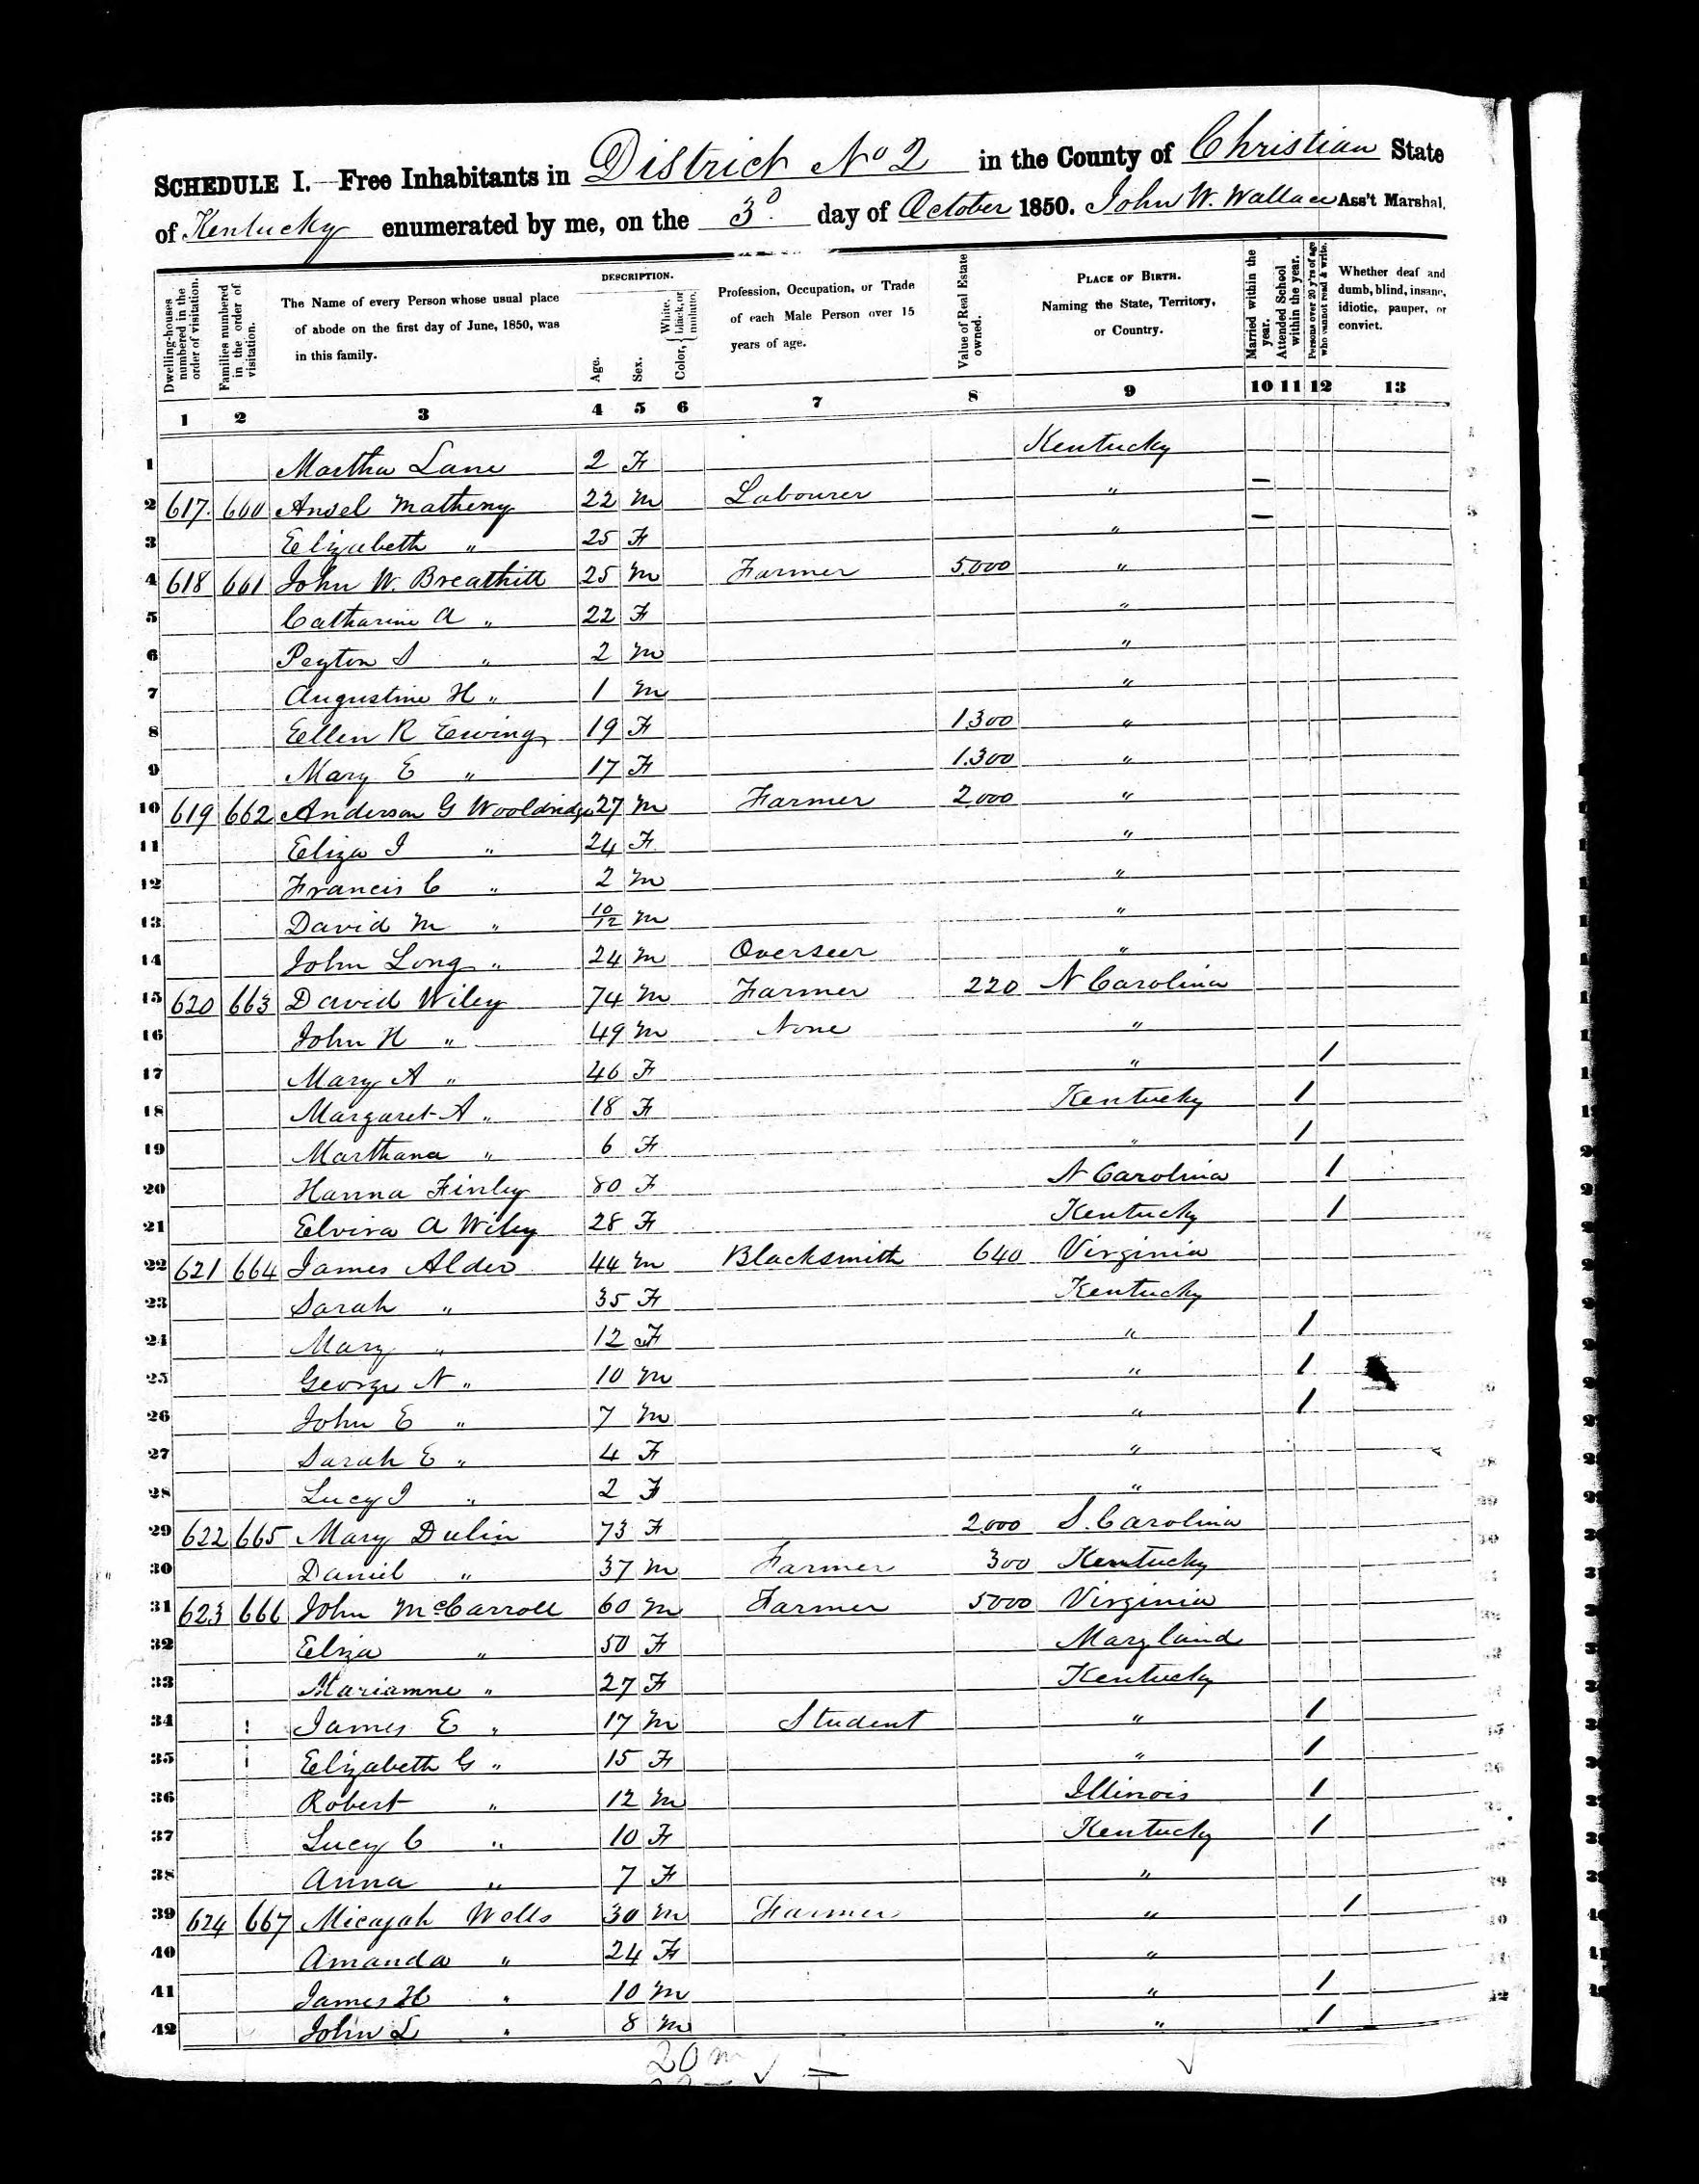 SCHEDULE I. Free Inhabitants in District No 2 in the County of Christian State
of Kentucky enumerated by me, on the 3d. day of October 1850. John W. Wallace Ass't Marshal.
Dwelling-houses numbered in the order of visitation.
Families numbered in the order of visitation.
The Name of every Person whose usual place of abode on the first day of June, 1850, was in this family.
DESCRIPTION.
Age.
Sex.
Color, { White, black, or mulatto.
Profession, Occupation, or Trade of each Male Person over 15 years of age.
Value of Real Estate owned.
PLACE OF BIRTH. Naming the State, Territory, or Country.
Married within the year.
Attended School within the year.
Persons over 20 y'rs of age who cannot read & write.
Whether deaf and dumb, blind, insane, idiotic, pauper, or convict.
1 2 3 4 5 6 7 8 9 10 11 12 13
1 Martha Lane 2 F Kentucky
2 617. 660 Ansel Matheny 22 M Labourer " —
3 Elizabeth " 25 F " —
4 618 661 John W. Breathitt 25 M Farmer 5.000 "
5 Catharine A " 22 F "
6 Peyton S " 2 M "
7 Augustine H " 1 M "
8 Ellen R Ewing 19 F 1.300 "
9 Mary E " 17 F 1.300 "
10 619 662 Anderson G Wooldridge 27 M Farmer 2.000 "
11 Eliza J " 24 F "
12 Francis C " 2 M "
13 David M " 10/12 M "
14 John Long " 24 M Overseer "
15 620 663 David Wiley 74 M Farmer 220 N Carolina
16 John H " 49 M None "
17 Mary A " 46 F " 1
18 Margaret A " 18 F Kentucky 1
19 Marthana " 6 F " 1
20 Hanna Finley 80 F N Carolina 1
21 Elvira A Wiley 28 F Kentucky 1
22 621 664 James Alder 44 M Blacksmith 640 Virginia
23 Sarah " 35 F Kentucky
24 Mary " 12 F " 1
25 George N " 10 M " 1
26 John E " 7 M " 1
27 Sarah E " 4 F "
28 Lucy J " 2 F "
29 622 665 Mary Dulin 73 F 2.000 S. Carolina
30 Daniel " 37 M Farmer 300 Kentucky
31 623 666 John McCarroll 60 M Farmer 5000 Virginia
32 Eliza " 50 F Maryland
33 Mariamne " 27 F Kentucky
34 James E " 17 M Student " 1
35 Elizabeth G " 15 F " 1
36 Robert " 12 M Illinois 1
37 Lucy C " 10 F Kentucky 1
38 Anna " 7 F "
39 624 667 Micajah Wells 30 M Farmer " 1
40 Amanda " 24 F "
41 James H " 10 M " 1
42 John L " 8 M " 1
20 m